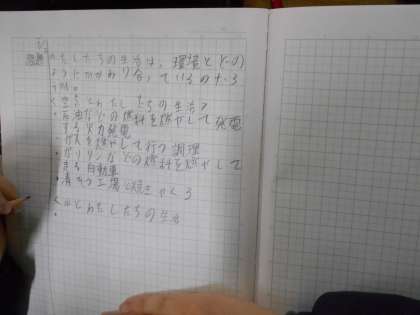 わたしたちの生活は、環境とどの
ようにかかわり合っているのだろ
うか。
<空気とわたしたちの生活>
・石油などの燃料を燃やして発電
する火力発電
・ガスを燃やして行う調理
・ガソリンなどの燃料を燃やして
走る自動車
工場
<水とわたしたちの生活
・